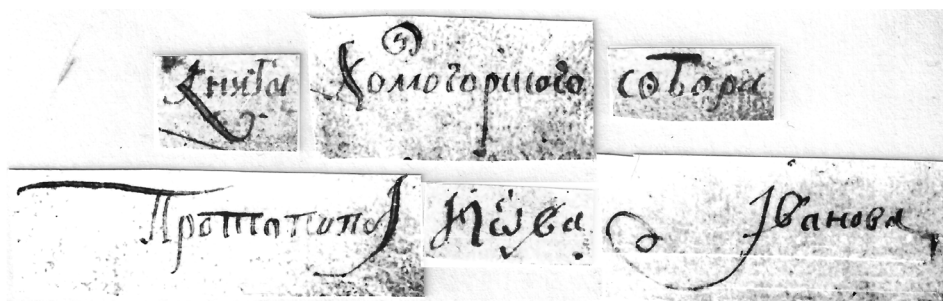 Книга Хомогорского собора
Протопопа Иѡва Iванова